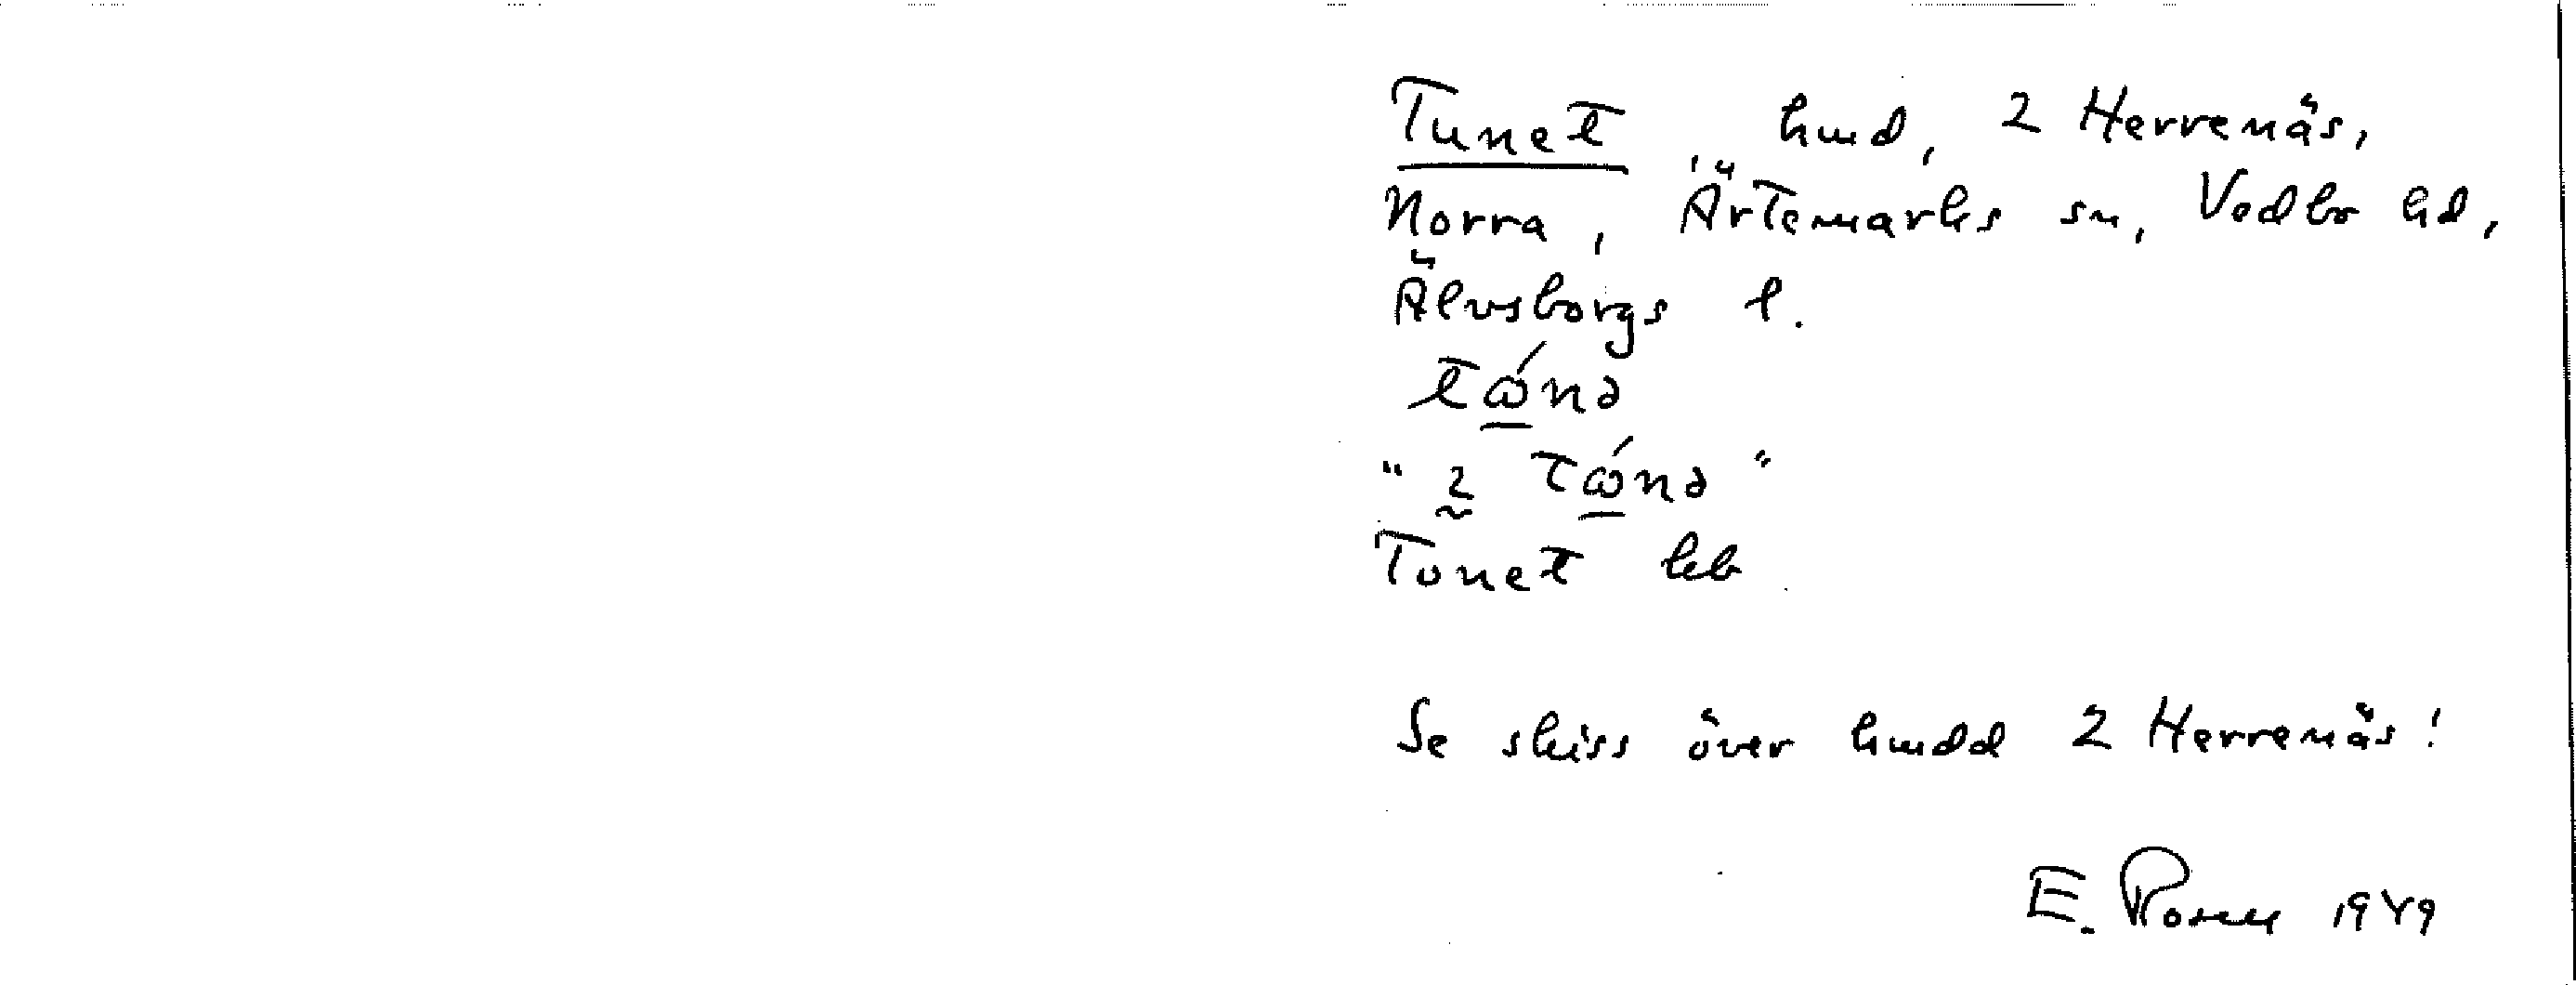 Tunet, hmd, 2 Herrenäs,
Norra, Ärtemarks sn, Vedbo hd,
Älvsborgs l.
tώ̲nə
" 2 tώ̲nə "
Tonet kb
Se skiss över hmdd 2 Herrenäs!
E. 1949